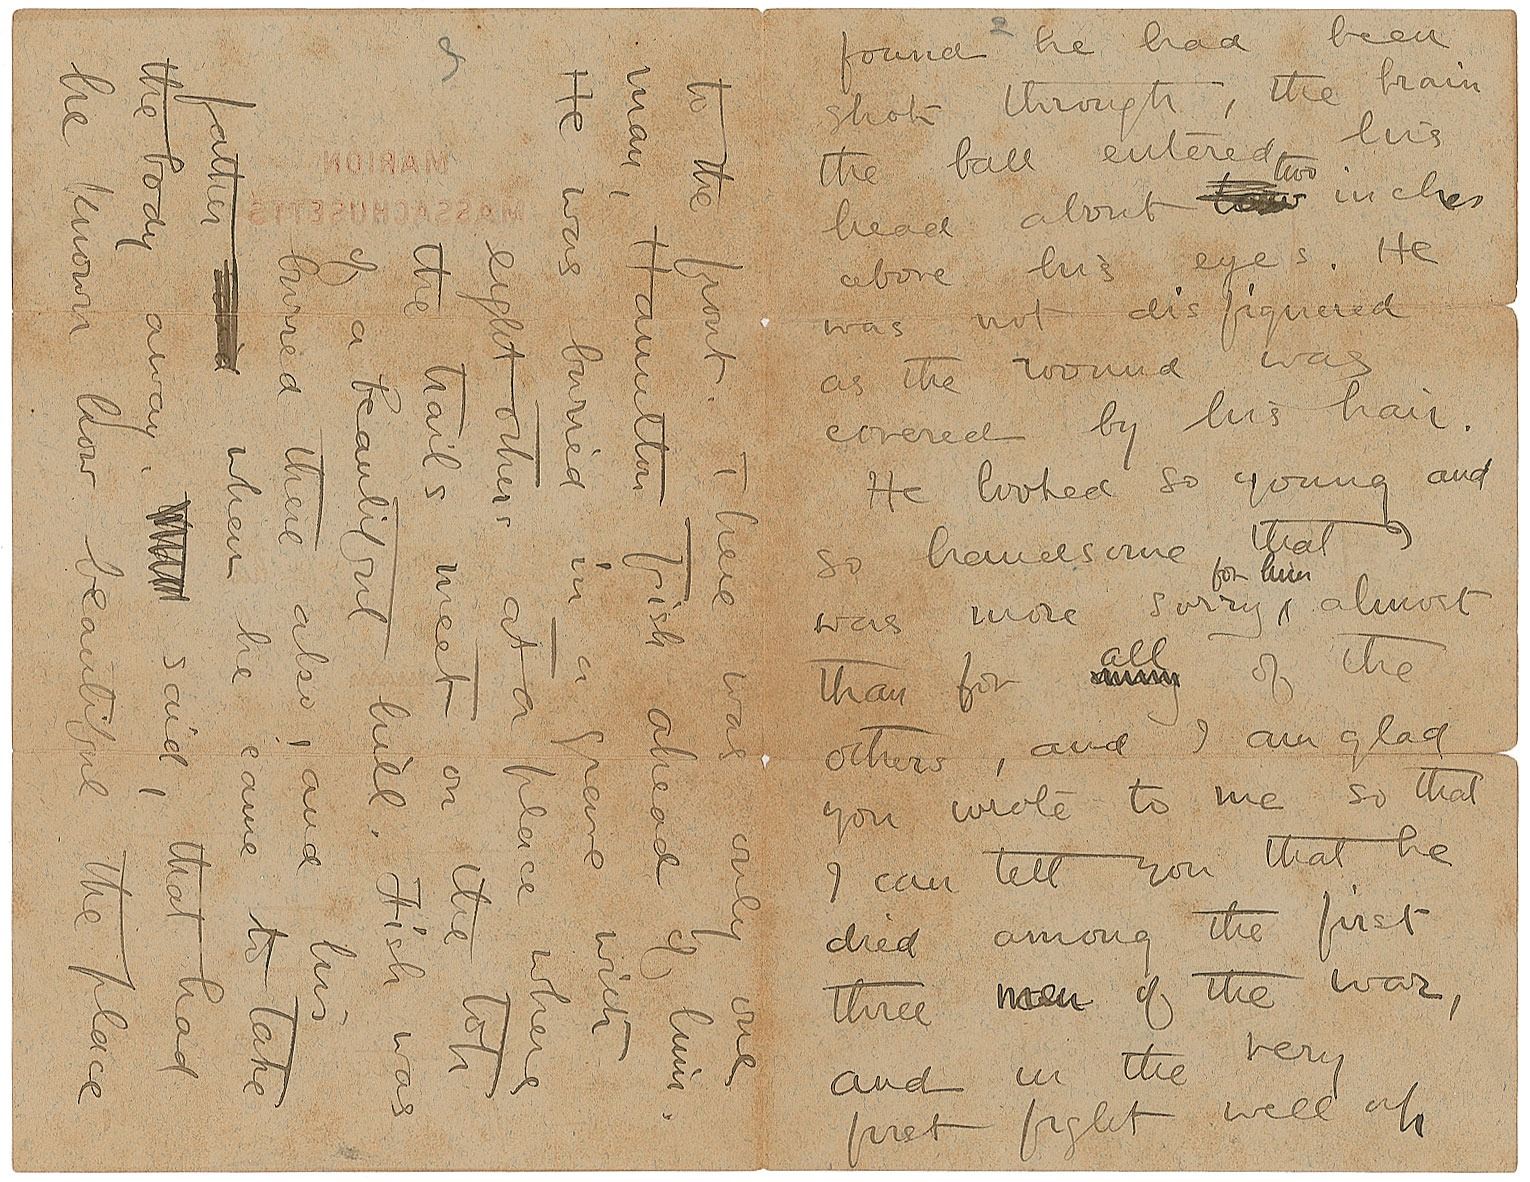 2
found he had been
shot through, the brain
the ball entered his
head about two inches
above his eyes. He
was not disfigured
as the wound was
covered by his hair.
He looked so young and
so handsome that I
was more sorry for him almost
than for all of the
others, and I am glad
you wrote to me so that
I can tell you that he
died among the first
three men of the war,
and in the very
first fight well up
3
to the front. There was only one
man, Hamilton Fish ahead of him.
He was buried in a grave with
eight others at a place where
the trails meet on the toh
of a beautiful hill. Fish was
buried there also, and his
father when he came to take
the body away. said, that had
he known how beautiful the place
MARION
MASSACHUSETTS